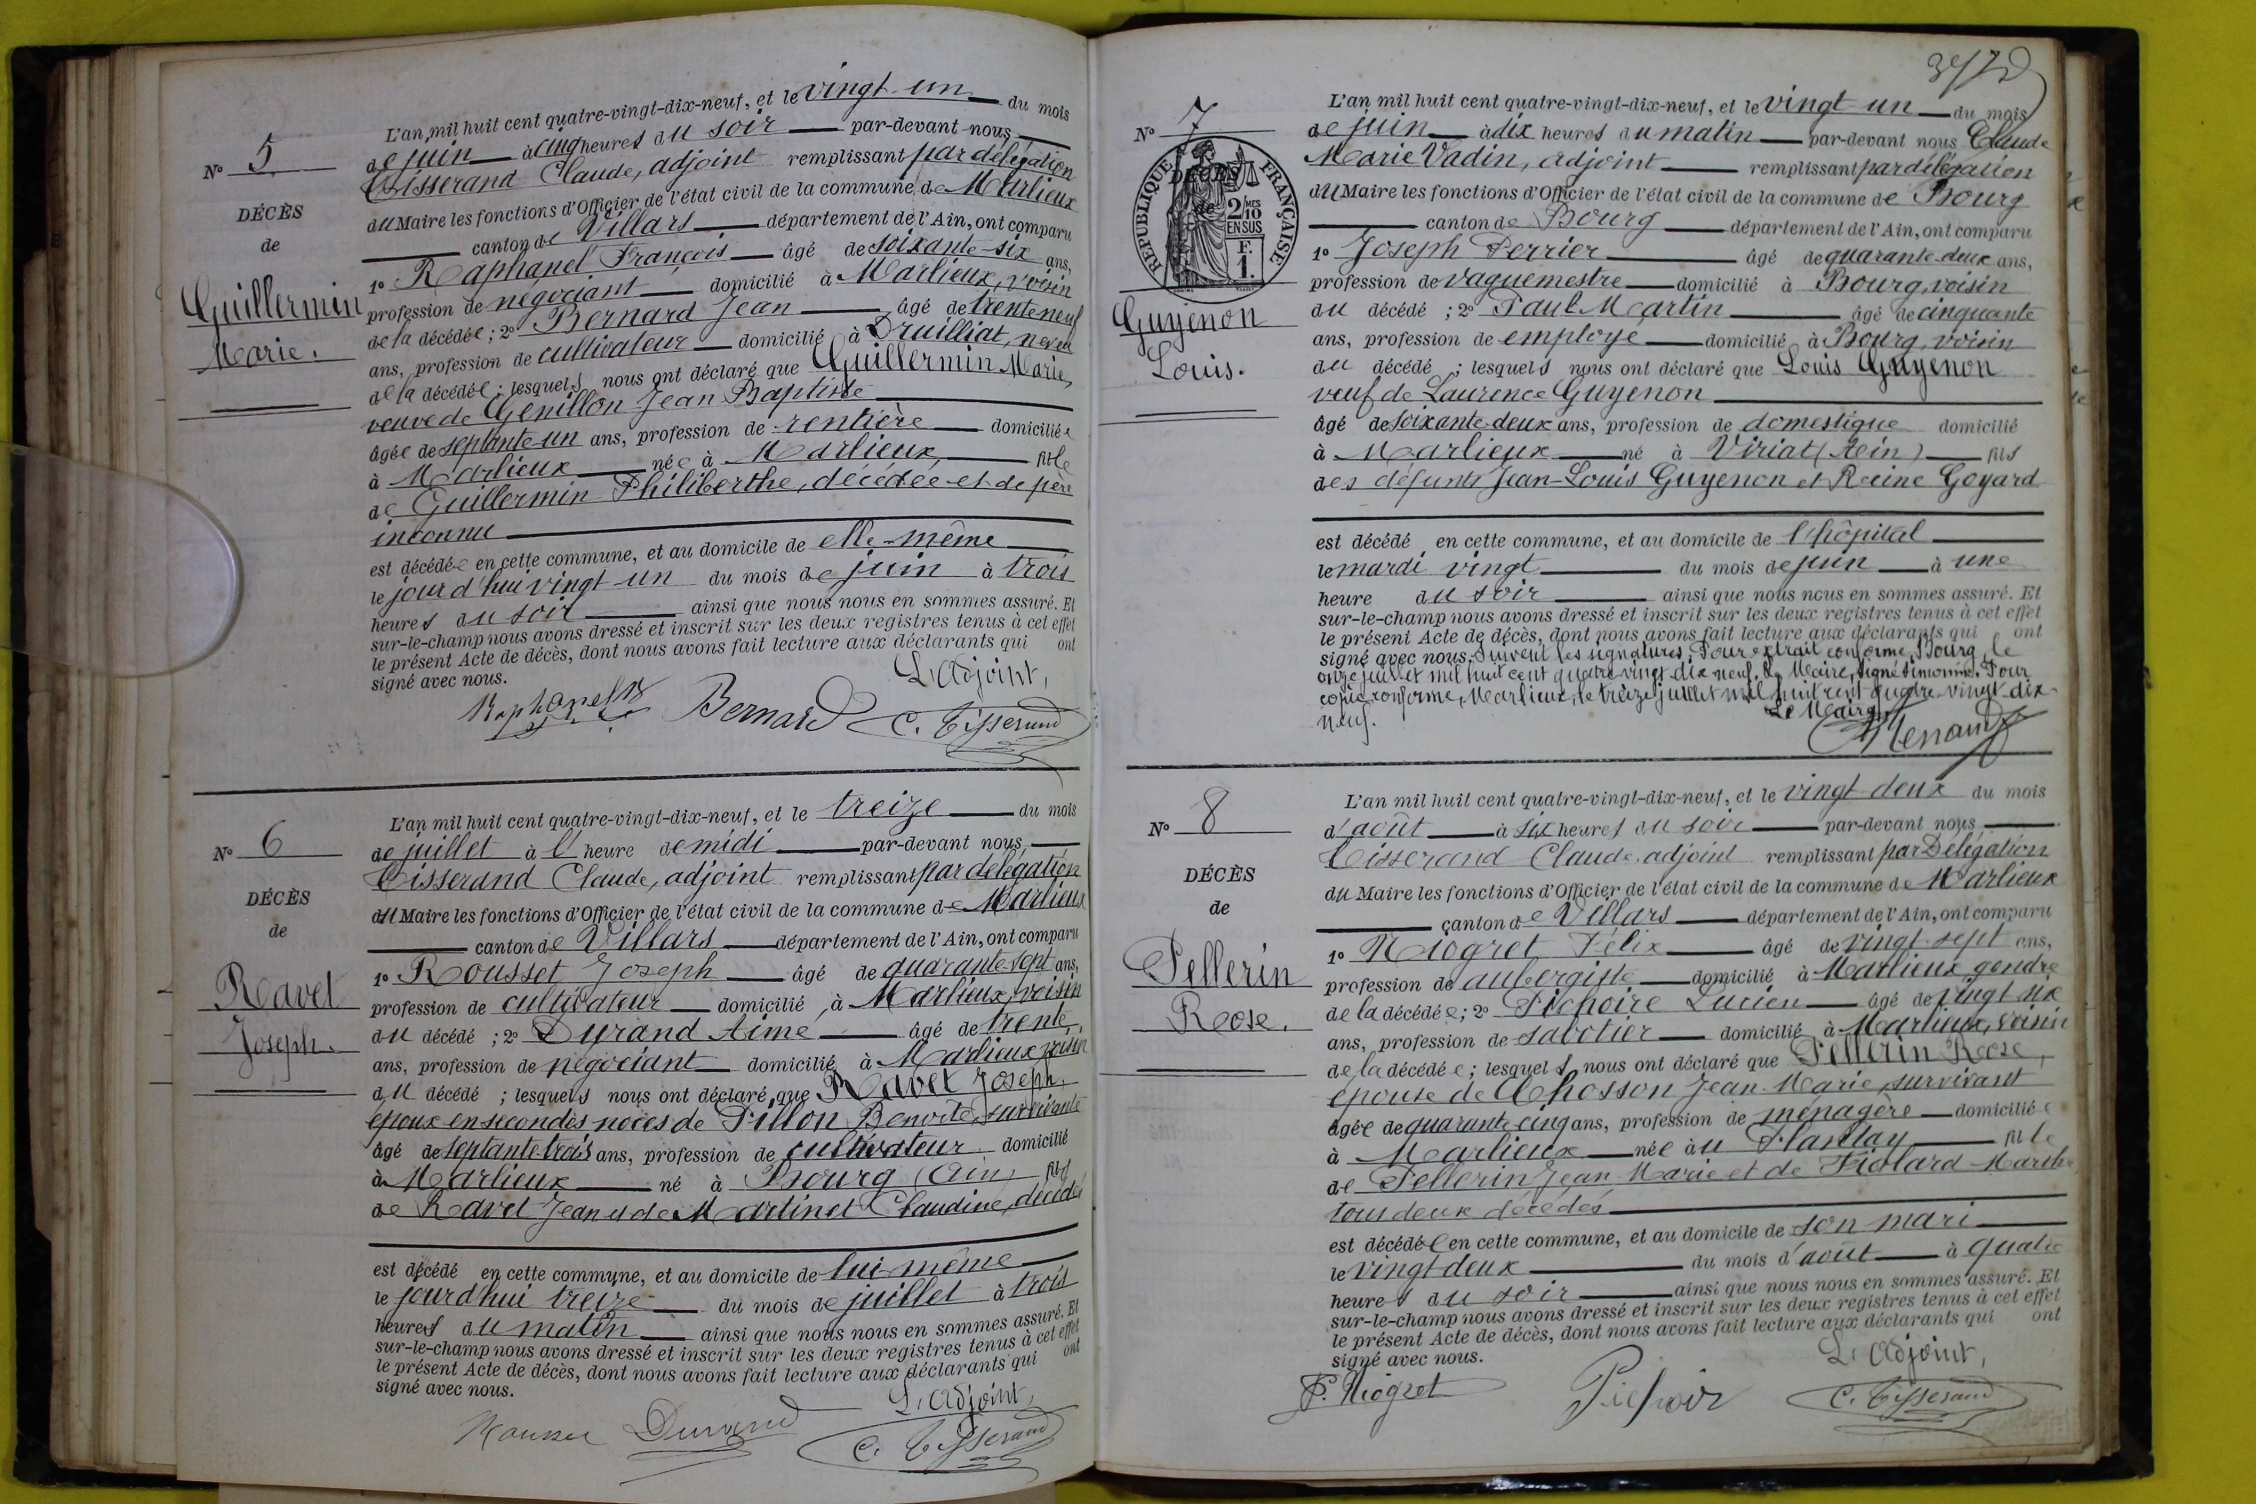 N° 5
DÉCÈS
de
Guillermin
Marie.
L'an mil huit cent quatre-vingt-dix-neuf, et le vingt un du mois
de juin à cinq heures du soir par-devant nous
Tisserand Claude, adjoint remplissant par délégation
du Maire les fonctions d'Officier de l'état civil de la commune de Marlieux
canton de Villars département de l'Ain, ont comparu
1° Raphanel François âgé de soixante-six ans,
profession de négociant domicilié à Marlieux, voisin
de la décédée ; 2° Bernard Jean âgé de trente neuf
ans, profession de cultivateur domicilié à Druilliat, neveu
de la décédée ; lesquels nous ont déclaré que Guillermin Marie,
veuve de Genillon Jean Baptiste
âgée de septante-un ans, profession de rentière domiciliée
à Marlieux née à Marlieux, fille
de Guillermin Philiberthe, décédée et de père
inconnu
est décédée en cette commune, et au domicile de elle-même
le jourd'hui vingt un du mois de juin à trois
heures du soir ainsi que nous nous en sommes assuré. Et
sur-le-champ nous avons dressé et inscrit sur les deux registres tenus à cet effet
le présent Acte de décès, dont nous avons fait lecture aux déclarants qui ont
signé avec nous.
L'Adjoint,
Raphanel Bernard C. Tisserand
N° 6
DÉCÈS
de
Ravet
Joseph.
L'an mil huit cent quatre-vingt-dix-neuf, et le treize du mois
de juillet à l' heure de midi par-devant nous,
Tisserand Claude, adjoint remplissant par délégation
du Maire les fonctions d'Officier de l'état civil de la commune de Marlieux
canton de Villars département de l'Ain, ont comparu
1° Rousset Joseph âgé de quarante-sept ans,
profession de cultivateur domicilié à Marlieux, voisin
du décédé ; 2° Durand Aimé âgé de trente
ans, profession de négociant domicilié à Marlieux voisin
du décédé ; lesquels nous ont déclaré que Ravet Joseph,
époux en secondes noces de Pillon Benoîte, survivante
âgé de septante-trois ans, profession de cultivateur domicilié
à Marlieux né à Bourg (Ain) fils
de Ravet Jean et de Martinet Claudine, décédés
est décédé en cette commune, et au domicile de lui-même
le jourd'hui treize du mois de juillet à trois
heures du matin ainsi que nous nous en sommes assuré. Et
sur-le-champ nous avons dressé et inscrit sur les deux registres tenus à cet effet
le présent Acte de décès, dont nous avons fait lecture aux déclarants qui ont
signé avec nous.
L'Adjoint,
Rousset Durand C. Tisserand
N° 7
RÉPUBLIQUE FRANÇAISE
DÉCÈS
de
2/10 MES
EN SUS
F.
1.
Guyenon
Louis.
L'an mil huit cent quatre-vingt-dix-neuf, et le vingt un du mois
de juin à dix heures du matin par-devant nous Claude
Marie Vadin, adjoint remplissant par délégation
du Maire les fonctions d'Officier de l'état civil de la commune de Bourg
canton de Bourg département de l'Ain, ont comparu
1° Joseph Perrier âgé de quarante-deux ans,
profession de vaguemestre domicilié à Bourg, voisin
du décédé ; 2° Paul Martin âgé de cinquante
ans, profession de employé domicilié à Bourg, voisin
du décédé ; lesquels nous ont déclaré que Louis Guyenon
veuf de Laurence Guyenon
âgé de soixante-deux ans, profession de domestique domicilié
à Marlieux né à Viriat (Ain) fils
des défunts Jean-Louis Guyenon et Reine Goyard
est décédé en cette commune, et au domicile de l'hôpital
le mardi vingt du mois de juin à une
heure du soir ainsi que nous nous en sommes assuré. Et
sur-le-champ nous avons dressé et inscrit sur les deux registres tenus à cet effet
le présent Acte de décès, dont nous avons fait lecture aux déclarants qui ont
signé avec nous. Suivent les signatures. Pour extrait conforme, Bourg, le
onze juillet mil huit cent quatre-vingt dix neuf. Le Maire, signé Simonin. Pour
copie conforme, Marlieux, le treize juillet mil huit cent quatre-vingt-dix-
neuf. Le Maire,
N° 8
DÉCÈS
de
Pellerin
Rose.
L'an mil huit cent quatre-vingt-dix-neuf, et le vingt deux du mois
d'août à six heures du soir par-devant nous
Tisserand Claude, adjoint remplissant par Délégation
du Maire les fonctions d'Officier de l'état civil de la commune de Marlieux
canton de Villars département de l'Ain, ont comparu
1° Niogret Félix âgé de vingt-sept ans,
profession de aubergiste domicilié à Marlieux gendre
de la décédée ; 2° Pichoire Lucien âgé de vingt six
ans, profession de sabotier domicilié à Marlieux, voisin
de la décédée ; lesquels nous ont déclaré que Pellerin Rose,
épouse de Chosson Jean-Marie, survivant
âgée de quarante cinq ans, profession de ménagère domiciliée
à Marlieux née au Plantay fille
de Pellerin Jean Marie et de Fiolard Marthe
tous deux décédés
est décédée en cette commune, et au domicile de son mari
le vingt deux du mois d'août à quatre
heures du soir ainsi que nous nous en sommes assuré. Et
sur-le-champ nous avons dressé et inscrit sur les deux registres tenus à cet effet
le présent Acte de décès, dont nous avons fait lecture aux déclarants qui ont
signé avec nous.
L'Adjoint,
F. Niogret Pichoir C. Tisserand